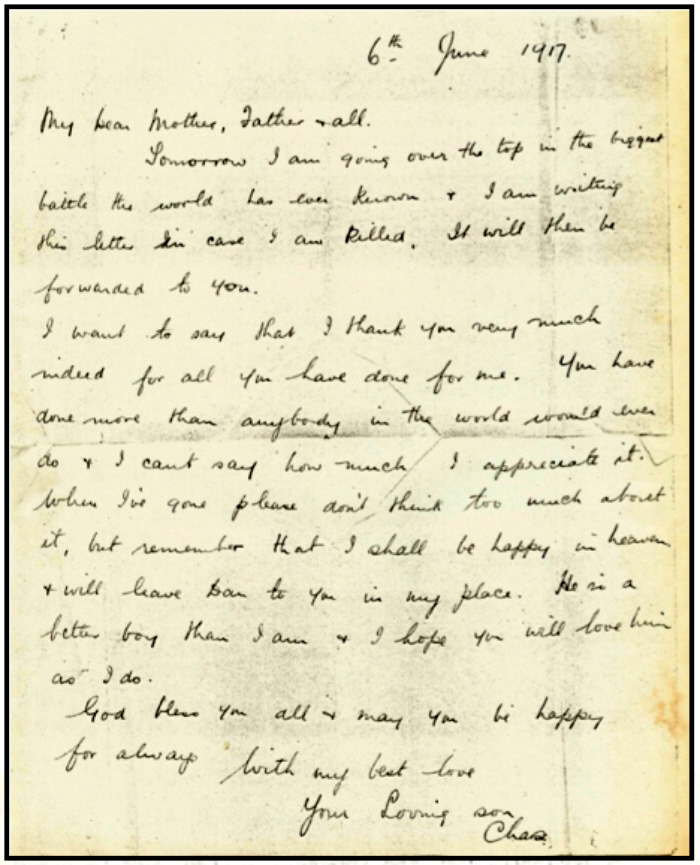 6th June 1917.
My Dear Mother, Father & all.
Tomorrow I am going over the top in the biggest
battle the world has ever known & I am writing
this letter in case I am killed. It will then be
forwarded to you.
I want to say that I thank you very much
indeed for all you have done for me. You have
done more than anybody in the world would ever
do & I can't say how much I appreciate it.
When I've gone please don't think too much about
it, but remember that I shall be happy in heaven
& will leave Dan to you in my place. He is a
better boy than I am & I hope you will love him
as I do.
God bless you all & may you be happy
for always
With my best love
Your Loving son
Chas.